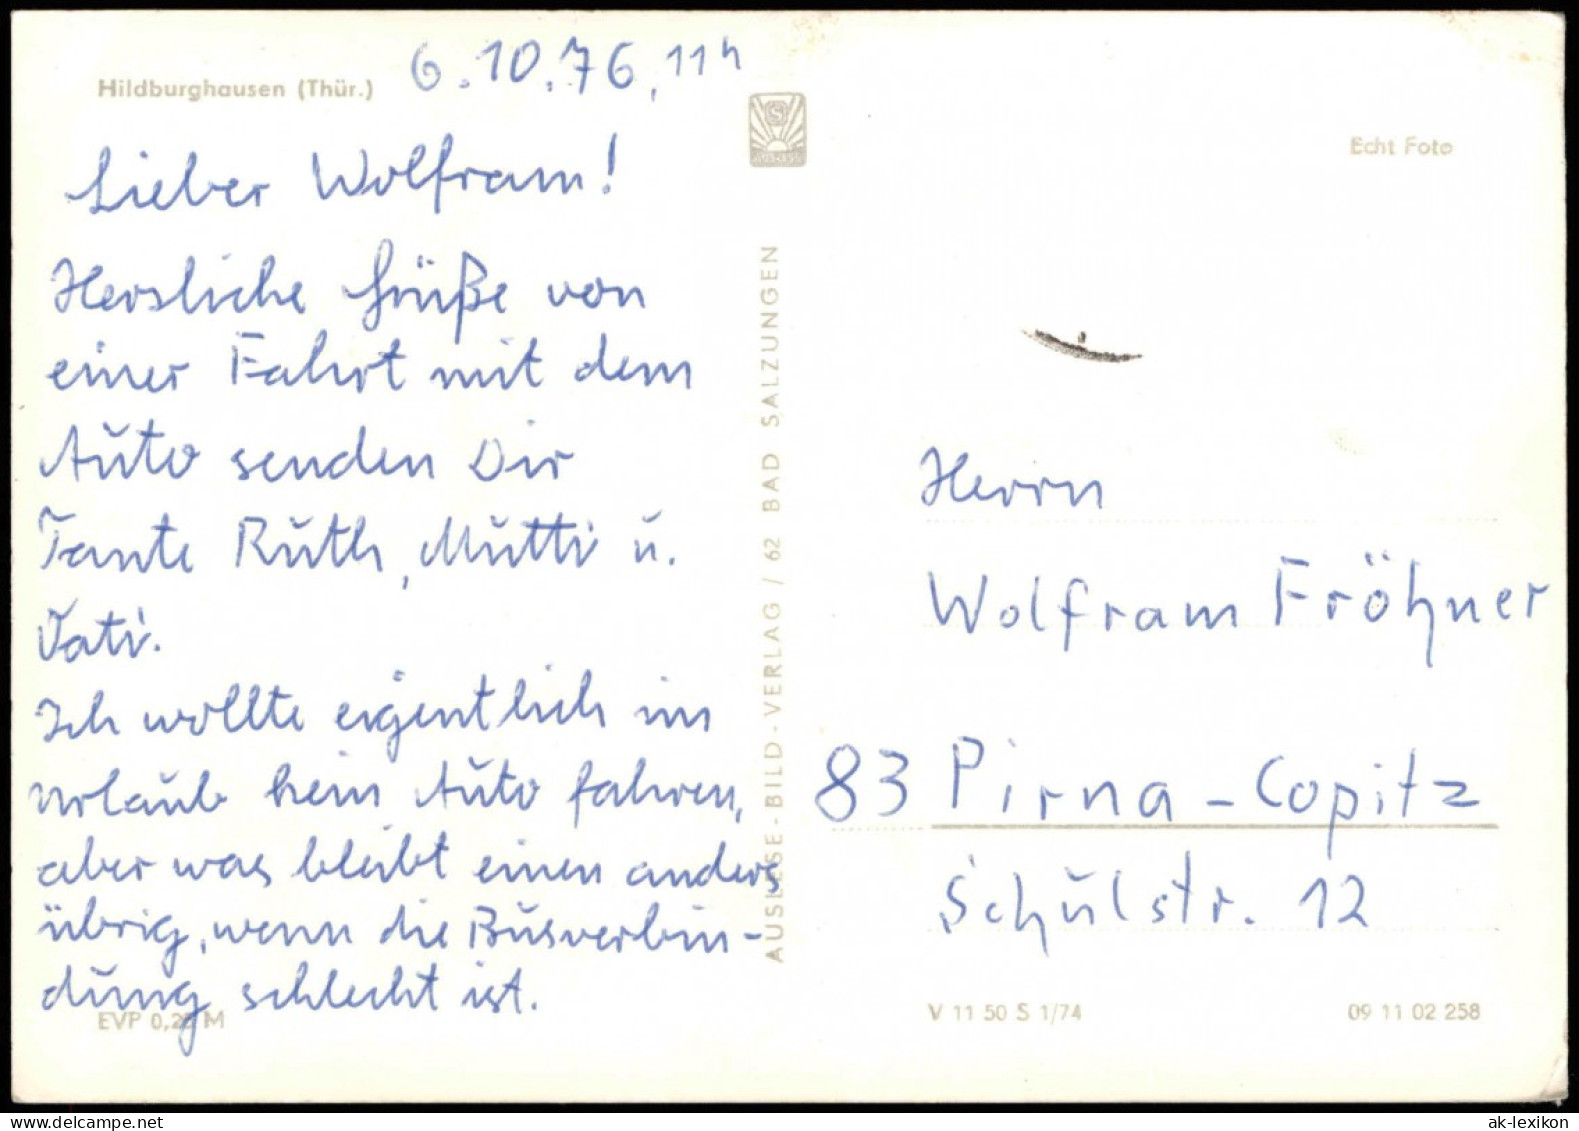 Hildburghausen (Thür.)
6.10.76, 11h
Lieber Wolfram!
Herzliche Grüße von
einer Fahrt mit dem
Auto senden Dir
Tante Ruth, Mutti u.
Vati.
Ich wollte eigentlich im
Urlaub kein Auto fahren,
aber was bleibt einen anders
übrig, wenn die Busverbin-
dung schlecht ist.
EVP 0,20 M
AUSLESE-BILD-VERLAG / 62 BAD SALZUNGEN
Echt Foto
Herrn
Wolfram Fröhner
83 Pirna-Copitz
Schulstr. 12
V 11 50 S 1/74
09 11 02 258
ak-lexikon